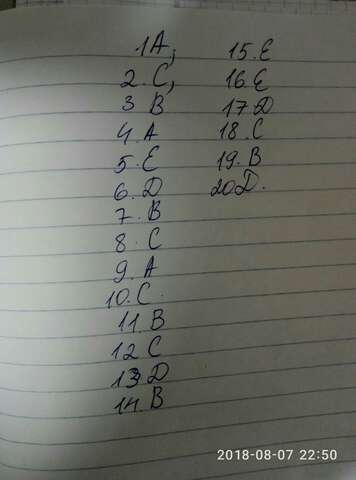 1A;
2. C,
3 B
4. A
5. E
6. D
7. B
8. C
9. A
10. C.
11. B
12 C
13 D
14. B
15. E
16. E
17. D
18. C
19. B
20 D.
2018-08-07 22:50